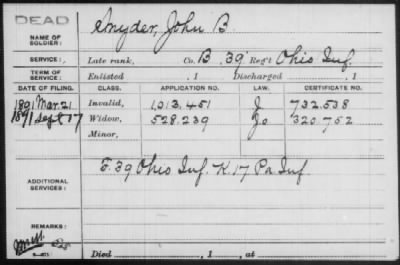 DEAD
NAME OF SOLDIER: Snyder, John B.
SERVICE: Late rank, Co. B, 39 Reg't Ohio Inf.
TERM OF SERVICE: Enlisted , 1 Discharged , 1
DATE OF FILING. CLASS. APPLICATION NO. LAW. CERTIFICATE NO.
1891 Mar. 21 Invalid, 1,013,451 J 732.538
1891 Sept 17 Widow, 528.239 Jo 320.752
Minor,
ADDITIONAL SERVICES: F. 39 Ohio Inf. K. 17 Pa Inf
REMARKS:
Died , 1 , at